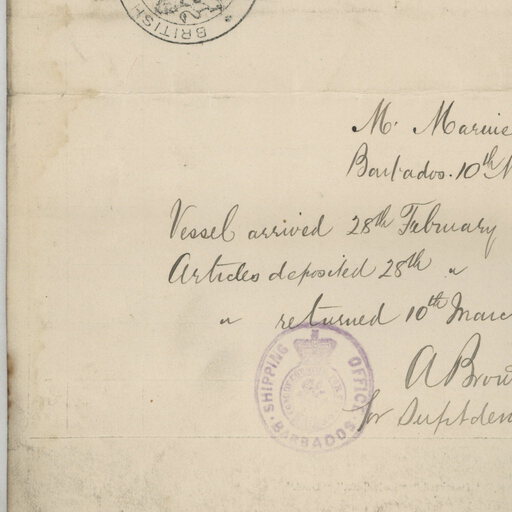 BRITISH
M. Marine
Barbados. 10th M
Vessel arrived 28th February
Articles deposited 28th "
" returned 10th Marc
A Brow
for Suptden
SHIPPING OFFICE
BARBADOS